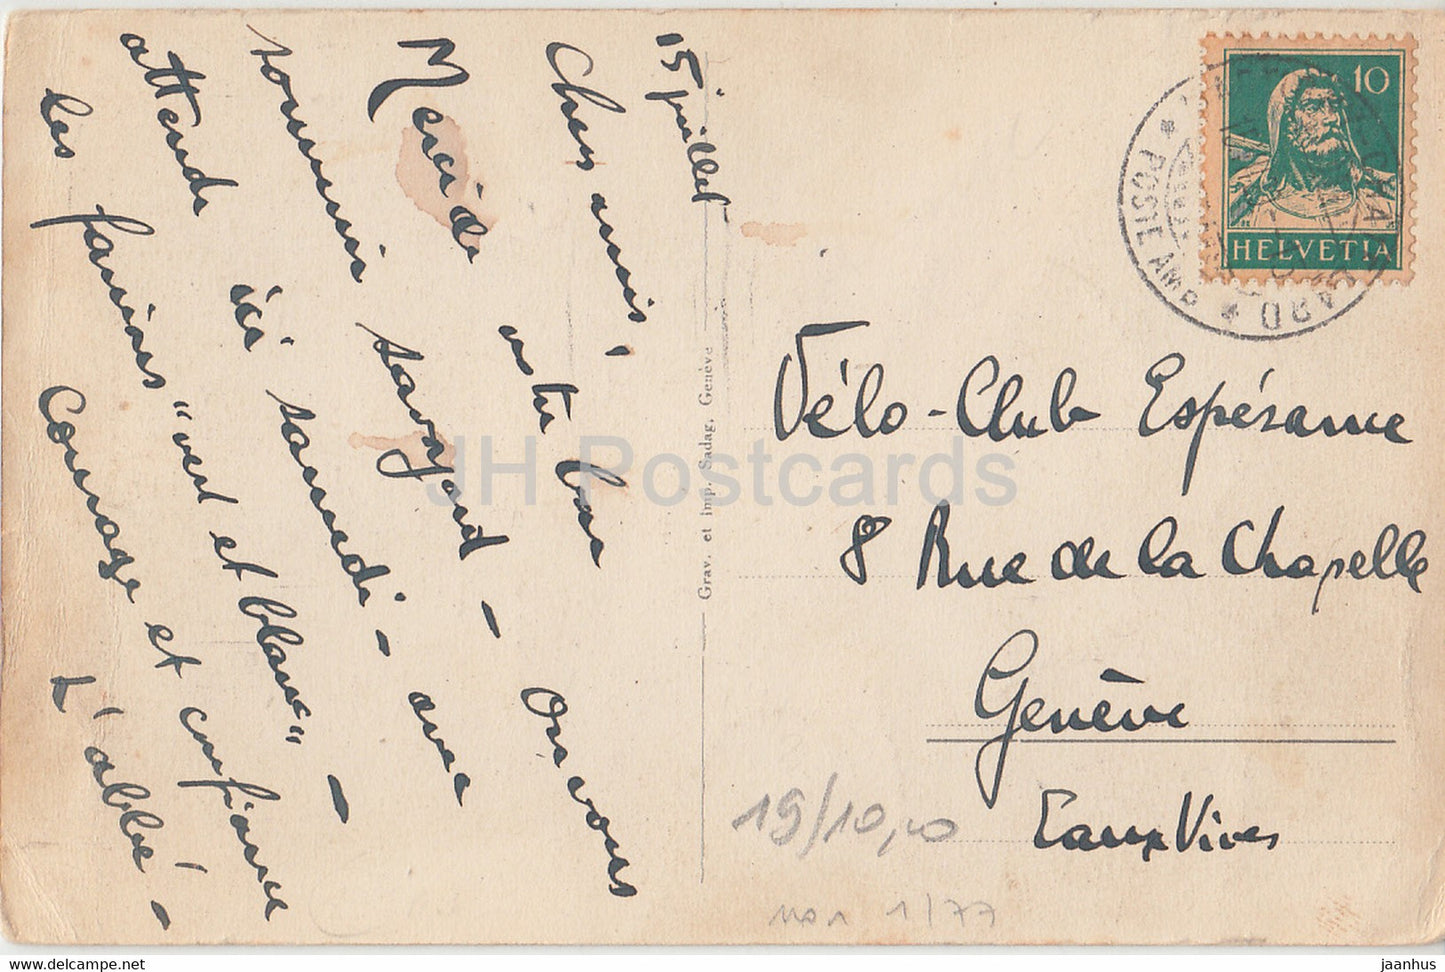 15 juillet
Chers amis,
Merci de votre bon
souvenir savoyard - On vous
attends ici samedi - avec
les fanions "vert et blanc" -
Courage et confiance
L'abbé -
Grav. et imp. Sadag, Genève
10
HELVETIA
POSTE AMB
Vélo-Club Espérance
8 Rue de la Chapelle
Genève
Eaux Vives
19/10,00
1/77
JH Postcards
www.delcampe.net
jaanhus